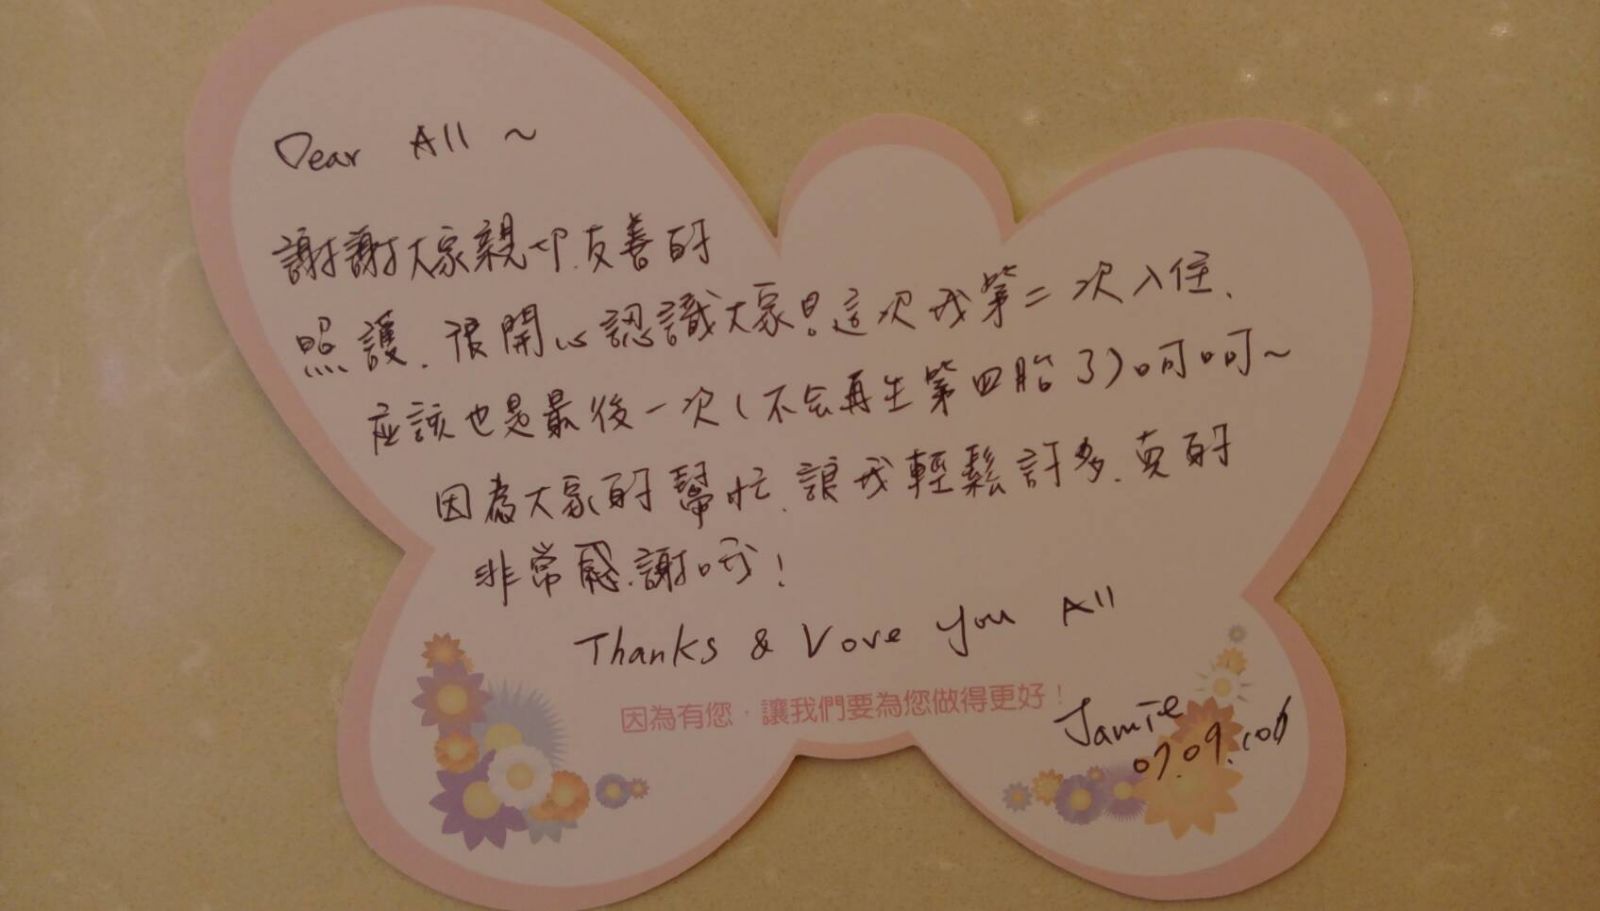 Dear All ~
謝謝大家親切.友善的
照護.很開心認識大家!這次我第二次入住.
应該也是最後一次(不会再生第四胎了)呵呵~
因為大家的幫忙.讓我輕鬆許多.真的
非常感謝哦!
Thanks & Love you All
因為有您‧讓我們要為您做得更好!
Jamie
07.09.106